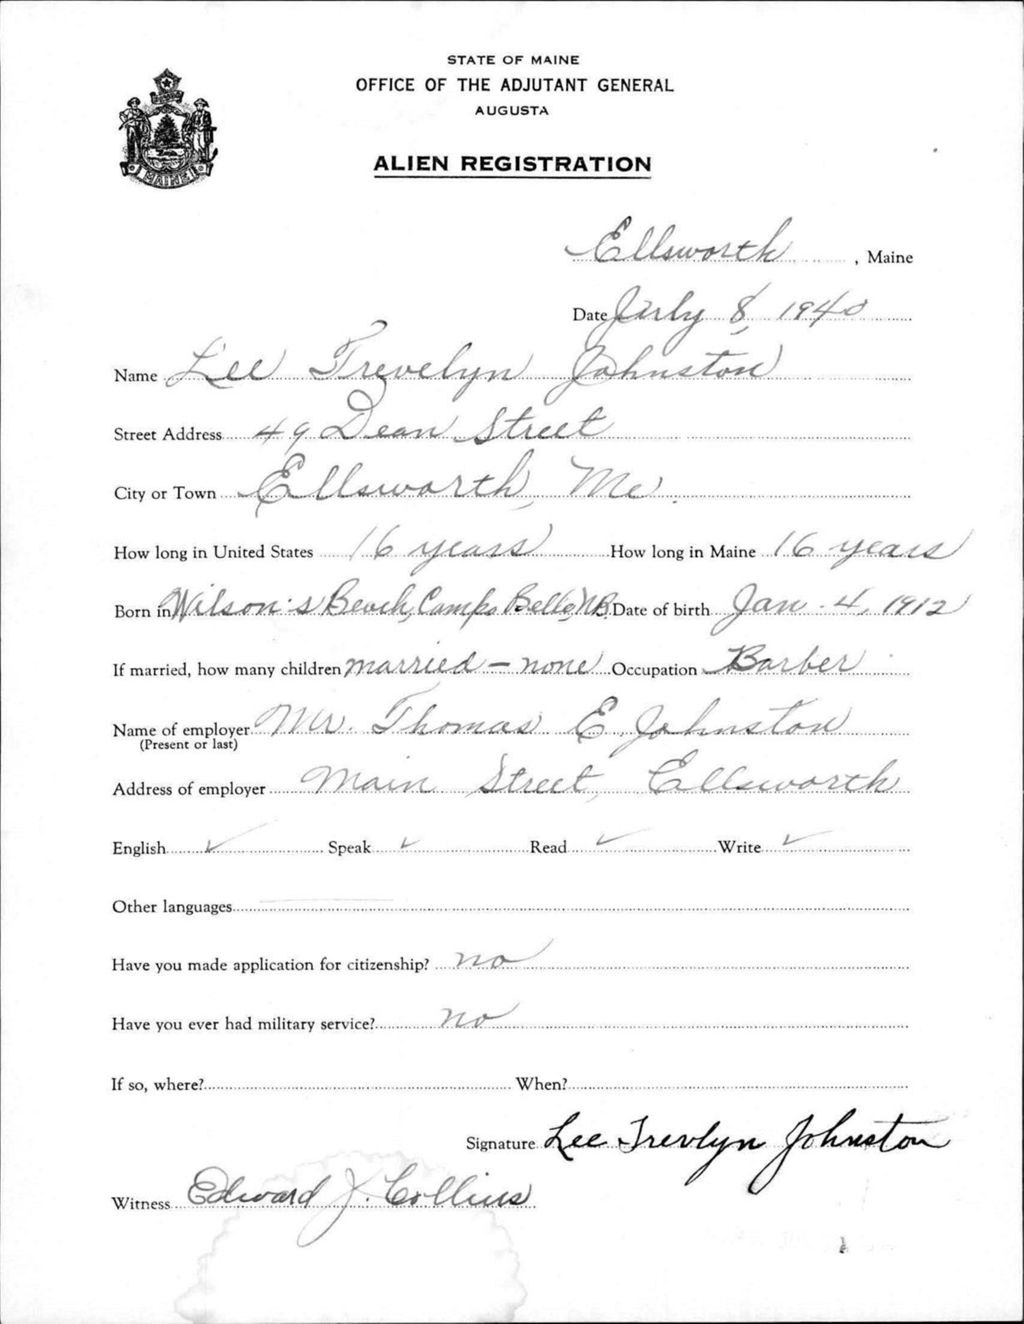 STATE OF MAINE
OFFICE OF THE ADJUTANT GENERAL
AUGUSTA
MAINE
ALIEN REGISTRATION
Ellsworth, Maine
Date July 8, 1940
Name Lee Trevelyn Johnston
Street Address 49 Dean Street
City or Town Ellsworth, Me.
How long in United States 16 years How long in Maine 16 years
Born in Wilson's Beach, Campo Bello, N.B. Date of birth Jan. 4, 1912
If married, how many children married - none Occupation Barber
Name of employer Mr. Thomas E. Johnston
(Present or last)
Address of employer Main Street, Ellsworth
English ✓ Speak ✓ Read ✓ Write ✓
Other languages
Have you made application for citizenship? no
Have you ever had military service? no
If so, where? When?
Signature Lee Trevlyn Johnston
Witness Edward J. Collins